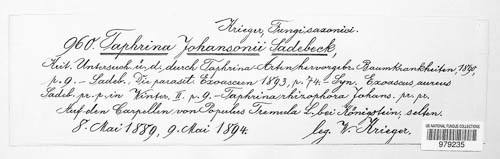 Krieger, Fungi saxonici.
960. Taphrina Johansonii Sadebeck,
Krit. Untersuch. ü. d. durch Taphrina Arten hervorgebr. Baumkrankheiten, 1890,
p. 9. - Sadeb., Die parasit. Exoasceen 1893, p. 74. - Syn. Exoascus aureus
Sadeb. pr. p. in Winter, II. p. 9. - Taphrina rhizophora Johans. pr. p.
Auf den Carpellen von Populus Tremula L. bei Königstein, selten.
8. Mai 1889, 9. Mai 1894. leg. W. Krieger.
US NATIONAL FUNGUS COLLECTIONS
979235